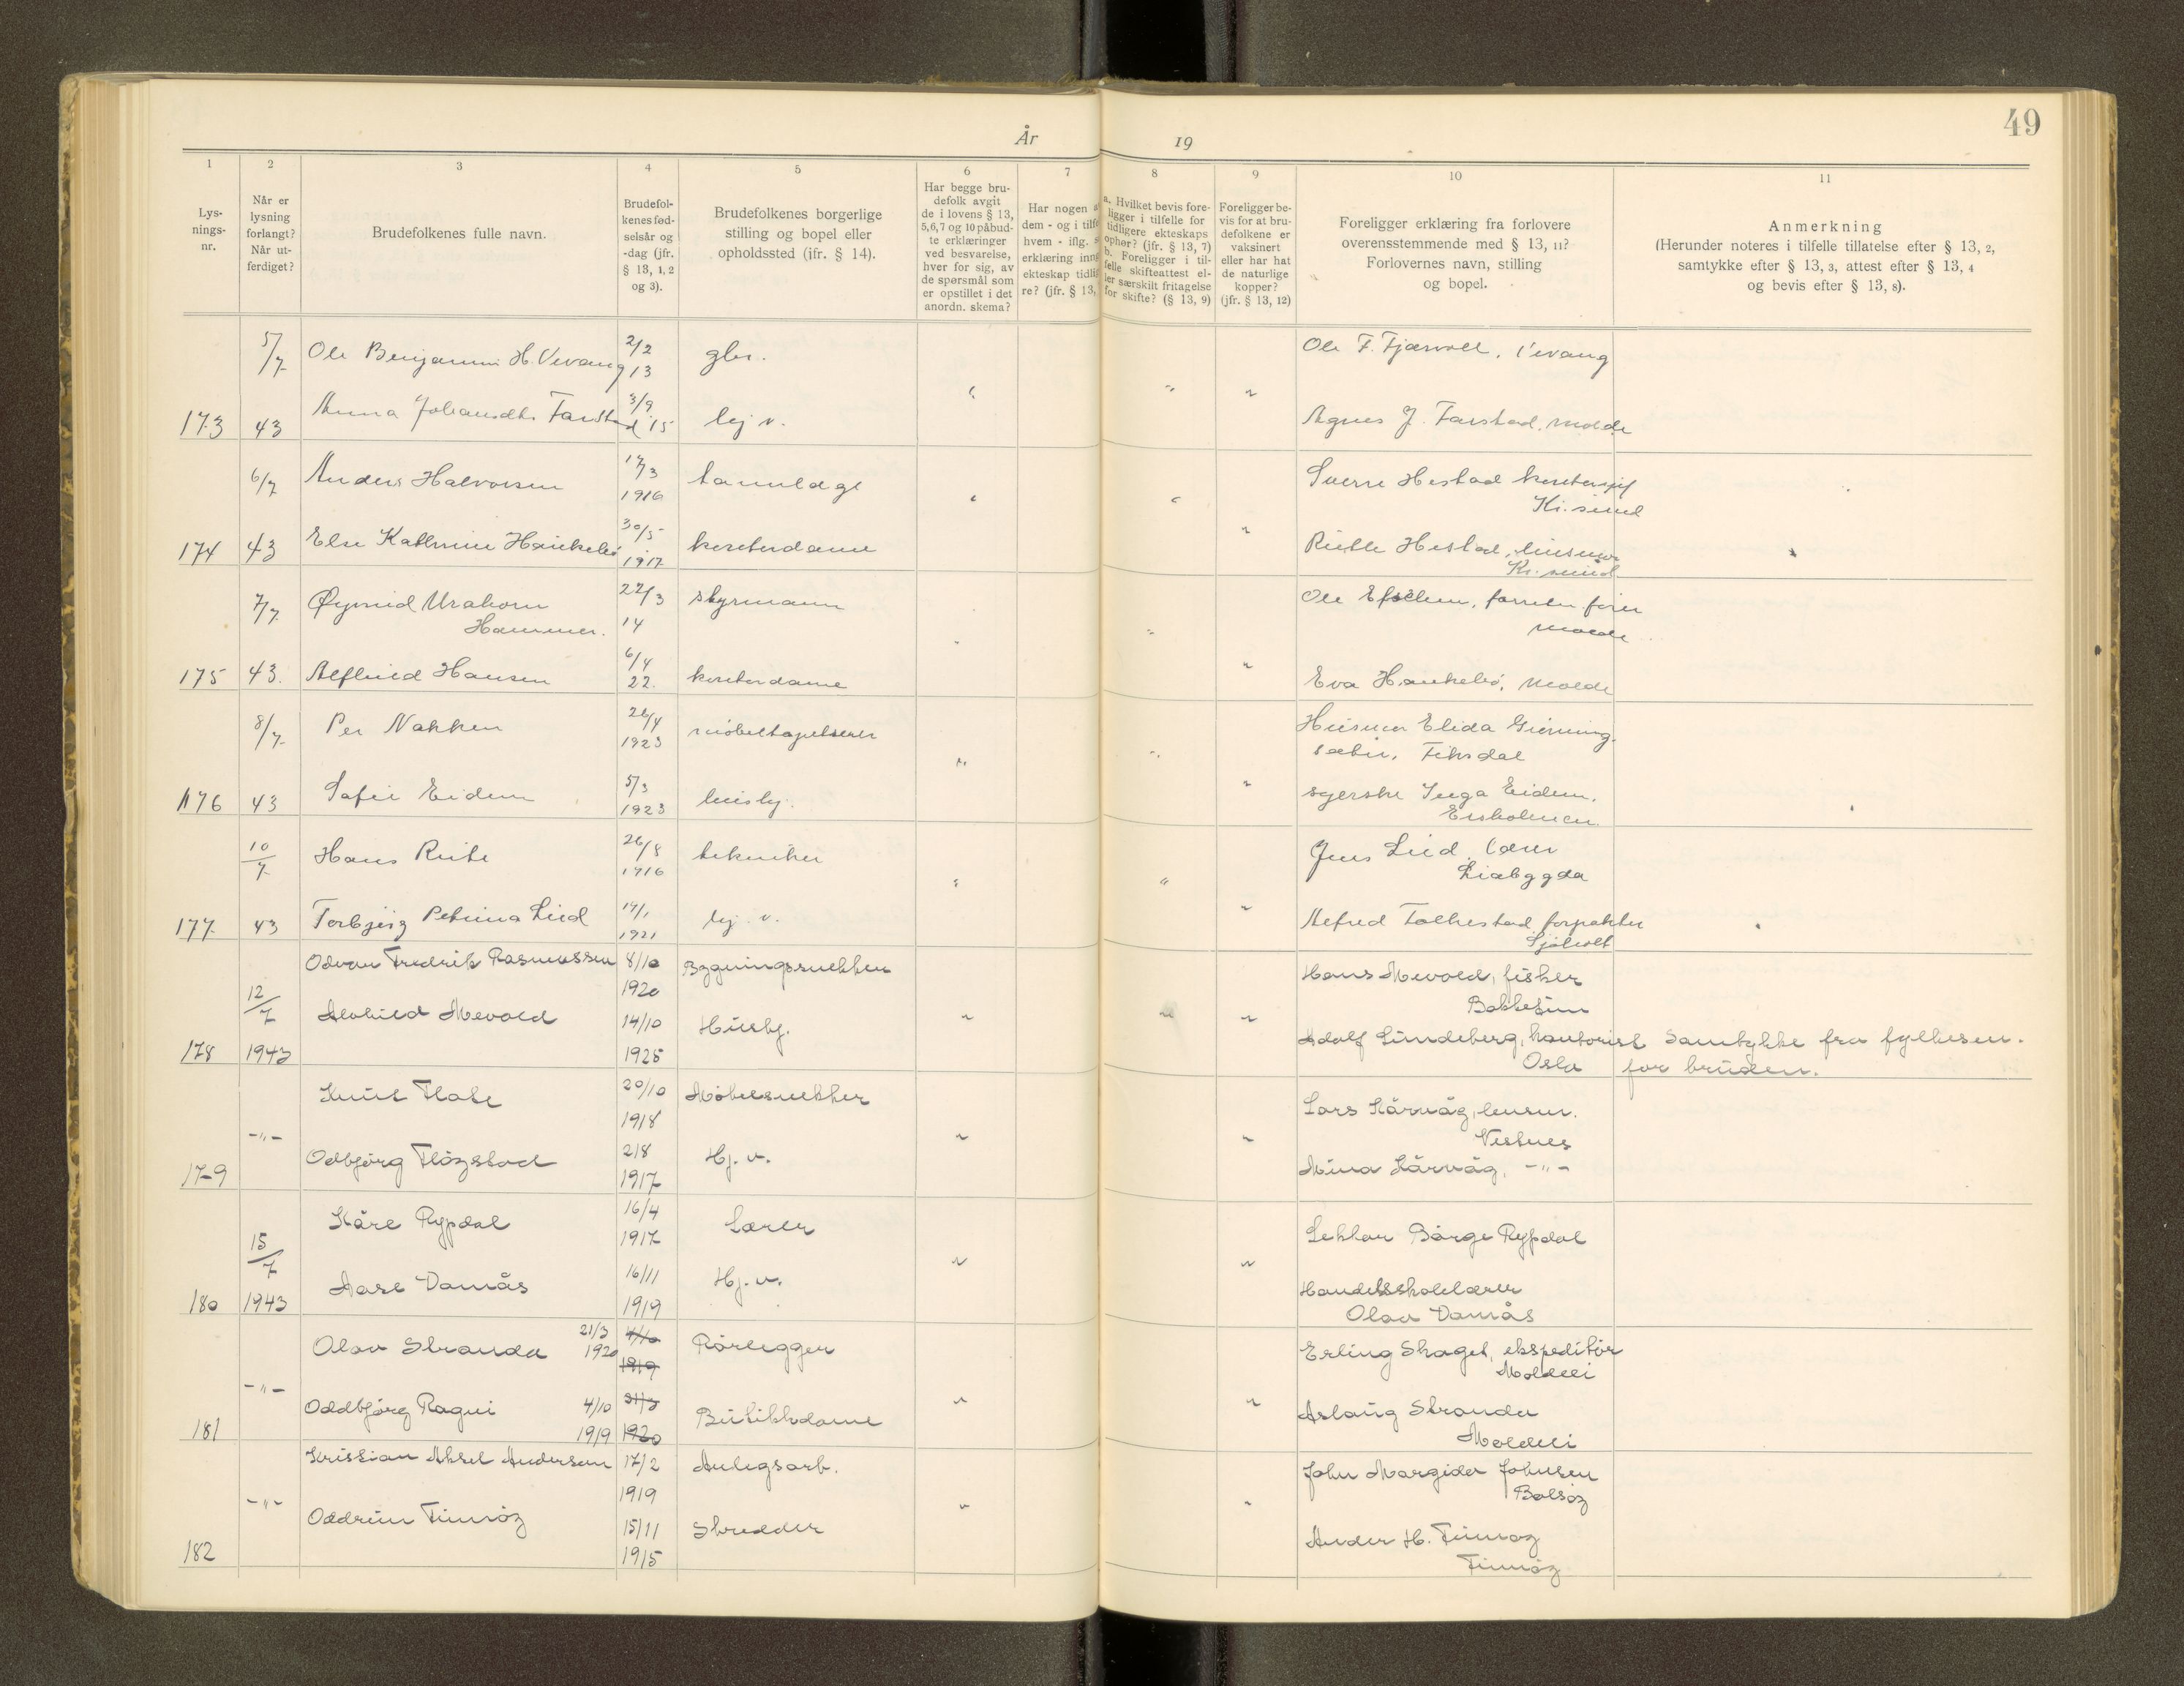 49
År 19
1
Lys-
nings-
nr.
2
Når er
lysning
forlangt?
Når ut-
ferdiget?
3
Brudefolkenes fulle navn.
4
Brudefol-
kenes fød-
selsår og
-dag (jfr.
§ 13, 1, 2
og 3).
5
Brudefolkenes borgerlige
stilling og bopel eller
opholdssted (jfr. § 14).
6
Har begge bru-
defolk avgit
de i lovens § 13,
5,6,7 og 10 påbud-
te erklæringer
ved besvarelse,
hver for sig, av
de spørsmål som
er opstillet i det
anordn. skema?
7
Har nogen a
dem - og i tilfe
hvem - iflg.
erklæring inng
ekteskap tidlig
re? (jfr. § 13,
8
a. Hvilket bevis fore-
ligger i tilfelle for
tidligere ekteskaps
ophør? (jfr. § 13, 7)
b. Foreligger i til-
felle skifteattest el-
ler særskilt fritagelse
for skifte? (§ 13, 9)
9
Foreligger be-
vis for at bru-
defolkene er
vaksinert
eller har hat
de naturlige
kopper?
(jfr. § 13, 12)
10
Foreligger erklæring fra forlovere
overensstemmende med § 13, 11?
Forlovernes navn, stilling
og bopel.
11
Anmerkning
(Herunder noteres i tilfelle tillatelse efter § 13, 2,
samtykke efter § 13, 3, attest efter § 13, 4
og bevis efter § 13, 8).
5/7 Ole Benjamin H. Vevang 2/2 13 gbr. Ole F. Fjærvoll, Vevang
173 43 Anna Johansdtr. Farstad 3/9 15 hj v. Agnes J. Farstad, Molde
6/7 Anders Halvorsen 17/3 1916 tannlege Sverre Hestad
Kr.sund
174 43 Else Kathrine 30/5 1917 kontordame Ruth Hestad, husmor
Kr.sund
7/7 Øyvind Urahorn 22/3 14 styrmann Ole
Hammer. Molde
175 43. Alfhild Hansen 6/4 22. kontordame Eva Hankebø, Molde
8/7 Per Nakken 26/4 1923 møbeltapetserer Husmor Elida Grønning
Fiksdal
176 43 Safie Eidem 5/3 1923 hushj. syerske Inga Eidem,
10/7 Hans Reite 26/8 1916 tekniker Jens Lied, lærer
Liabygda
177 43 Torbjørg Petrina Lied 14/1 1921 hj. v. Alfred Tolkestad, forpakter
Sjøholt
Odvar Fredrik Rasmussen 8/10 1920 Bygningssnekker Hans Mevold, fisker
12/7 Bekkesün
178 1943 Alvhild Mevold 14/10 1925 Hüshj. Adolf Lündeberg, kontorist Samtykke fra fylkesm.
Oslo for brüden.
Knüt Flate 20/10 1918 Møbelsnekker Lars Kårvåg, lensm.
-"- Vestnes
179 Odbjørg Fløystad 2/8 1917 Hj. v. Mina Kårvåg, -"-
Kåre Rypdal 16/4 1917 Lærer Lektor Børge Rypdal
15/7
180 1943 Aase Damås 16/11 1919 Hj. v. Handelsskolelærer
Olav Damås
Olav Stranda 21/3 1920 4/10 1919 Rørlegger Erling Skaget, ekspeditør
-"- Moldeli
181 Oddbjørg Ragni 4/10 1919 21/3 1920 Bütikkdame Aslaüg Stranda
Moldeli
Kristian Aksel Andersen 17/2 1919 Anlegsarb. John Margido Johnsen
-"- Bolsøy
182 Oddrün Finnøy 15/11 1915 Skredder Ander H. Finnøy
Finnøy